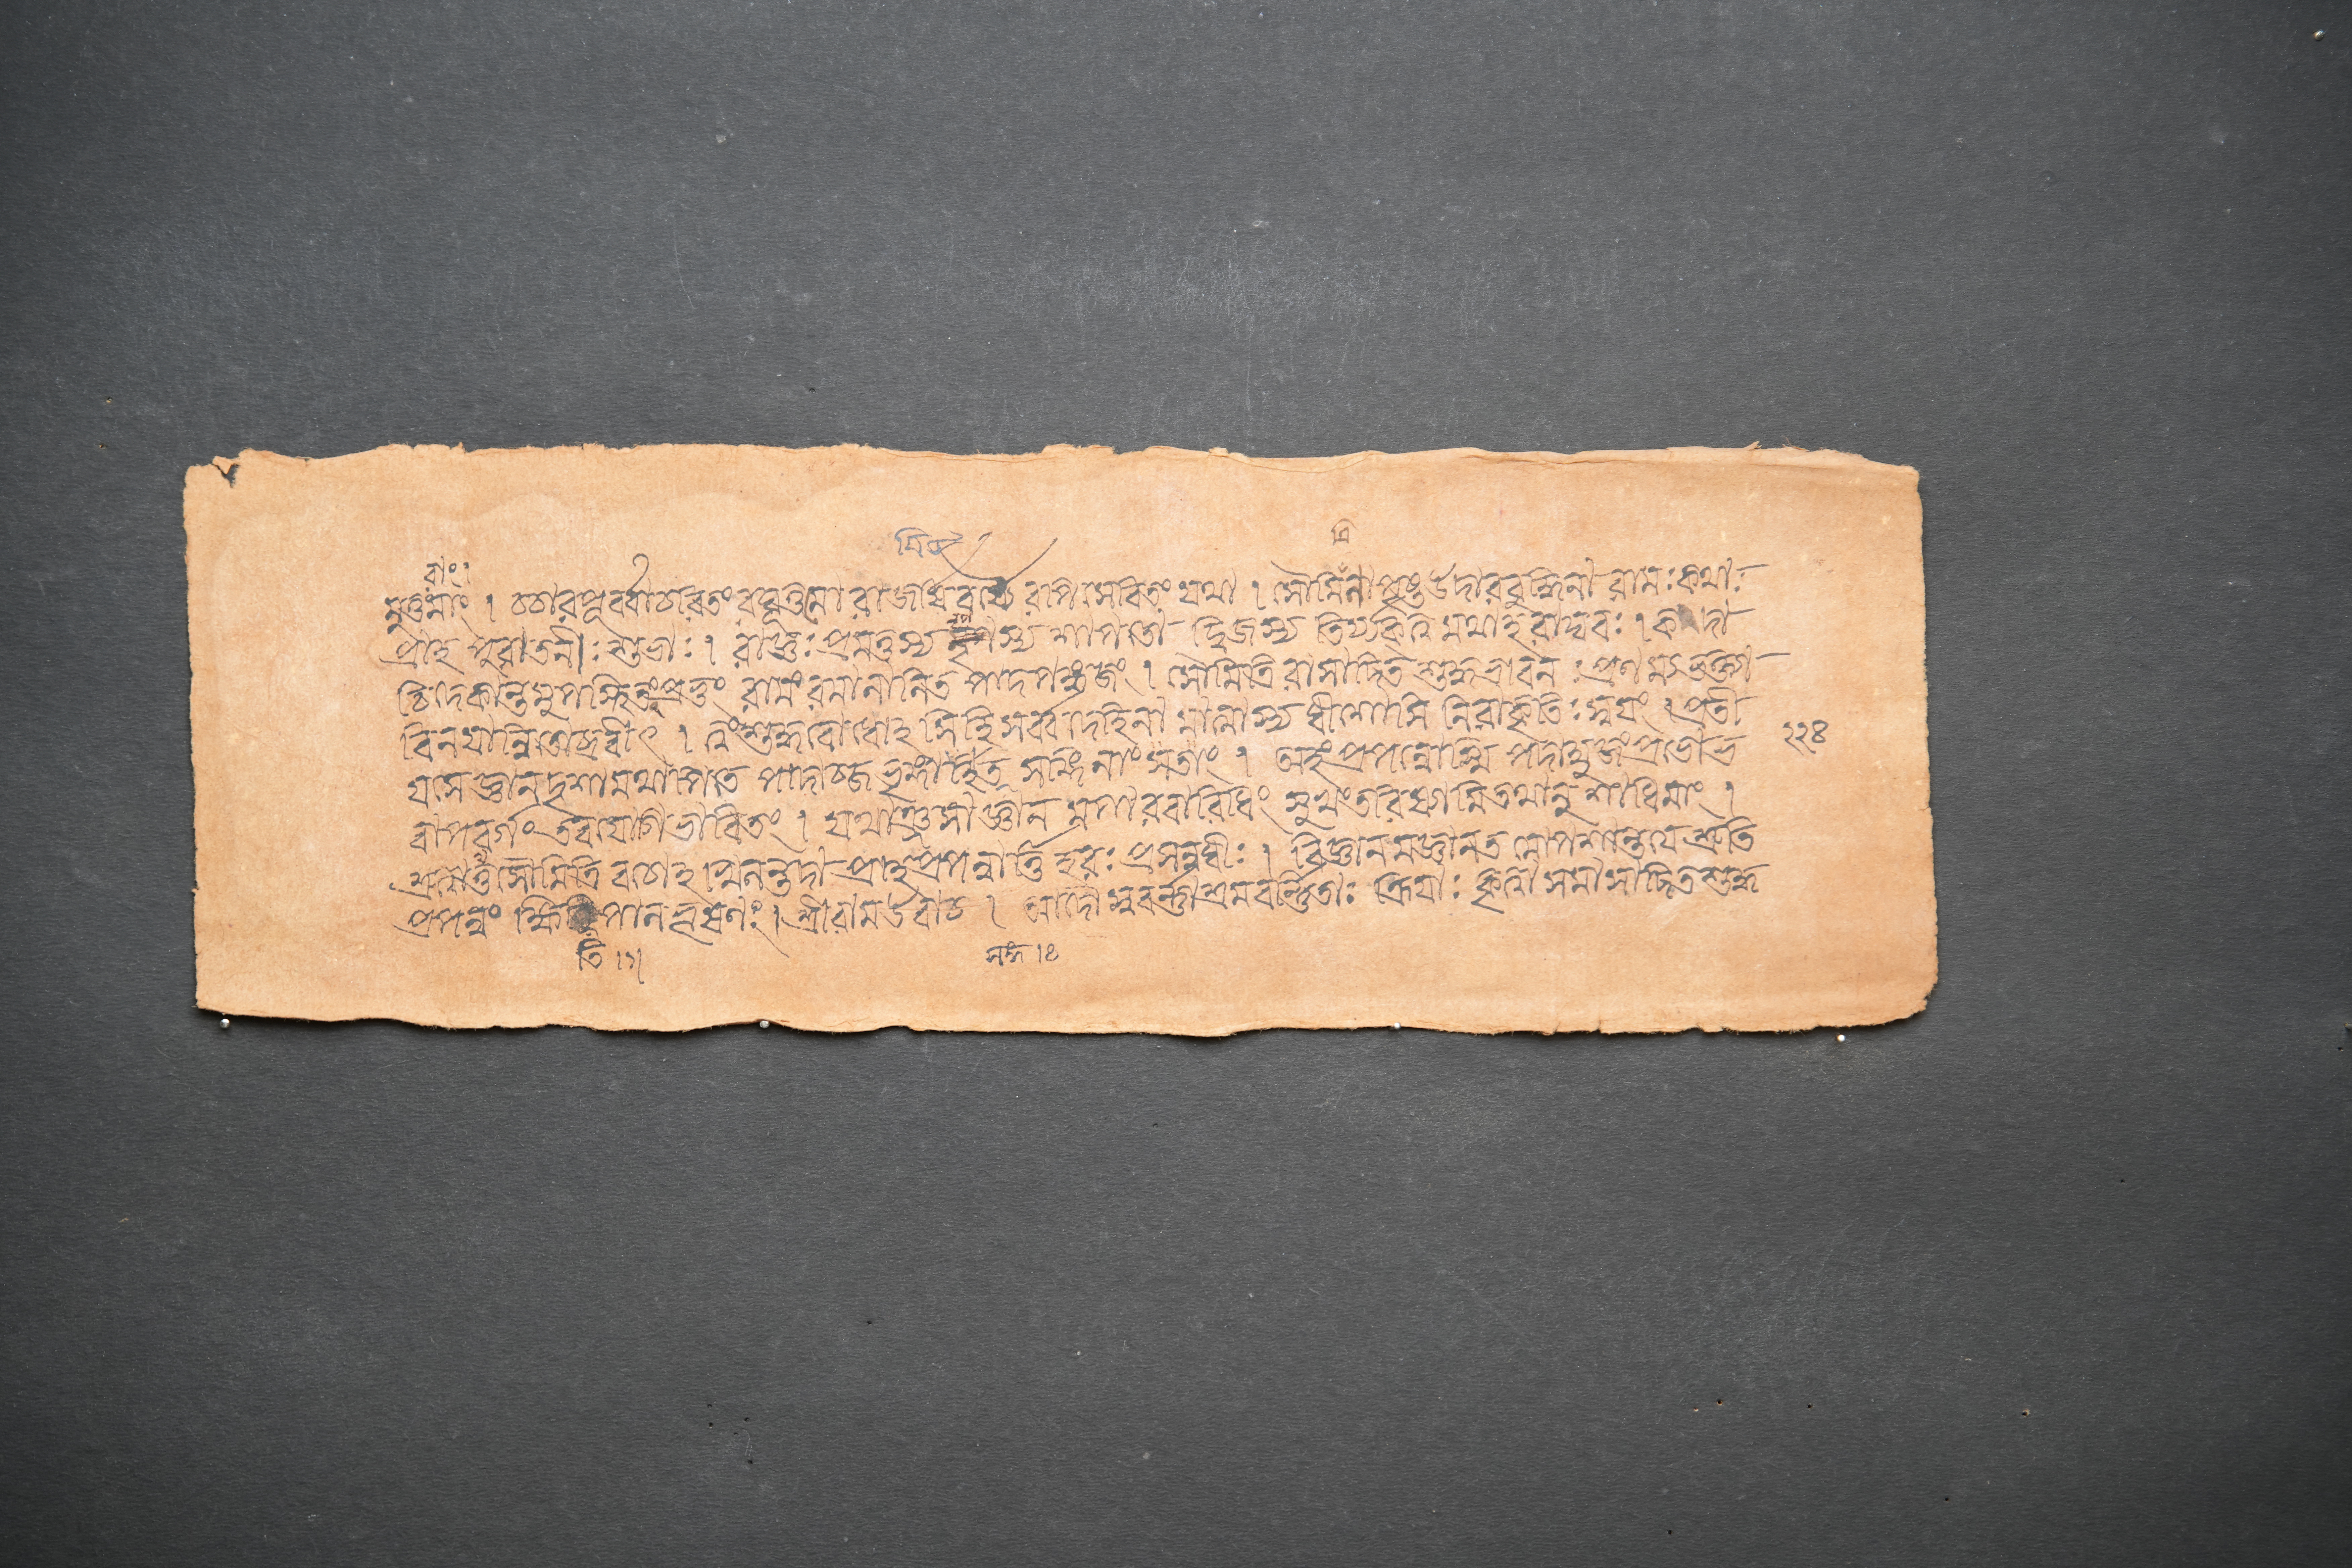 মুত্তমাং । চচার পূর্ব্বাচরিতং রঘূত্তমো রাজর্ষিবর্য্যৈ রপি সেবিতং যথা । সৌমিত্রিনা পৃষ্ট উদারবুদ্ধিনা রামঃ কথাঃ
প্রাহ পুরাতনীঃ শুভাঃ । রাজ্ঞঃ প্রমত্তস্য নৃগস্য শাপতো দ্বিজস্য তির্য্যক্ত্বমথাহ রাঘবঃ । কদা
চিদেকান্তমুপস্থিতং প্রভুং রামং রমালালিত পাদপঙ্কজং । সৌমিত্রিরাসাদিত শুদ্ধভাবনঃ প্রণম্য ভক্ত্যা
বিনয়ান্বিতোঽব্রবীৎ । ত্বং শুদ্ধবোধোঽসি হি সর্ব্বদেহিনামাত্মাস্যধীশোসি নিরাকৃতিঃ স্বয়ং । প্রতী
যসে জ্ঞানদৃশাং পাদাব্জ ভৃঙ্গাহিত সঙ্গিনাং সতাং । অহং প্রপন্নোস্মি পদাম্বুজং প্রভো ভ
বাপবর্গং তব যোগিভাবিতং । যথাঞ্জসাজ্ঞানমপারবারিধিং সুখং তরিষ্যামি তথানুশাধিমাং ।
শ্রুত্বাথ সৌমিত্রি বচোঽখিলন্তদা প্রাহ প্রপন্নার্ত্তি হরঃ প্রসন্নধীঃ । বিজ্ঞানমজ্ঞানতমোপশান্তয়ে শ্রুতি
প্রপন্নং ক্ষিতিপালভূষণঃ । শ্রীরামউবাচ । আদৌ স্ববর্ণাশ্রমবর্ণিতাঃ ক্রিয়াঃ কৃত্বা সমাসাদিতশুদ্ধ
২২৪
তি ।৭।